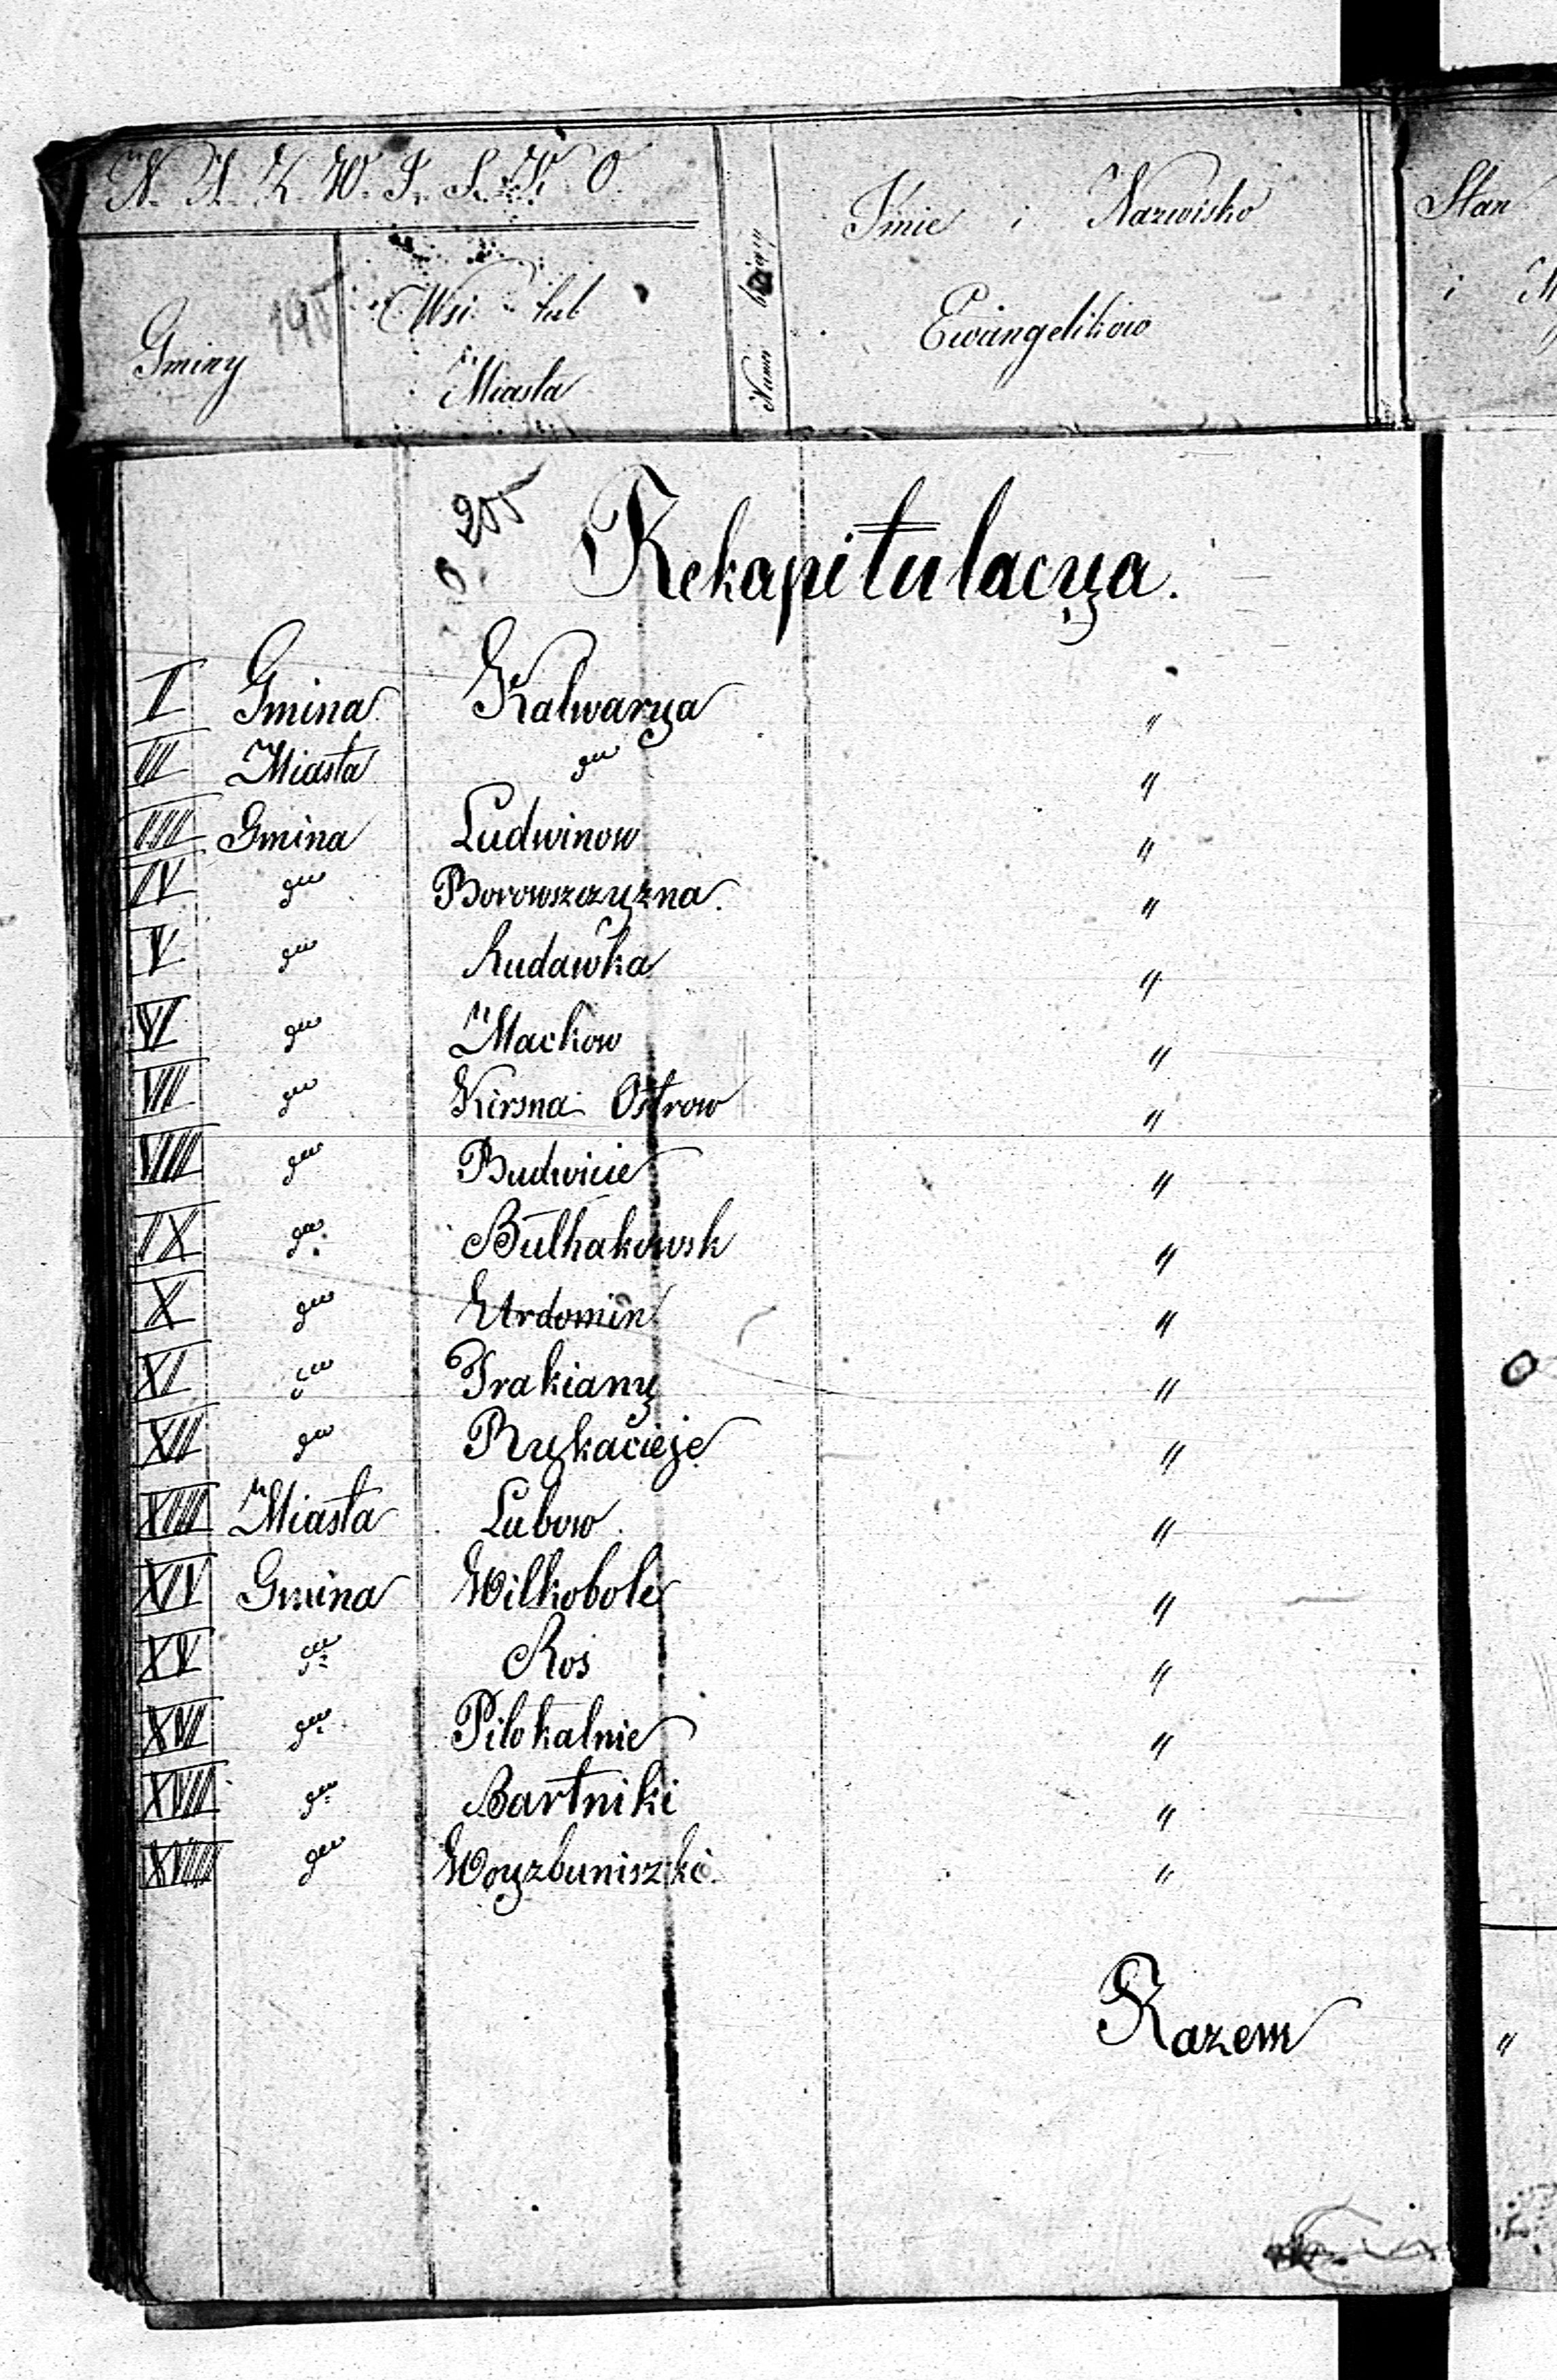 N. A. Z. W. I. S. K. O.
Gminy
Wsi lub
Miasta
Numer bieżący
Imie i Nazwisko
Ewangelikow
Stan
i
195
205
Rekapitulacya.
I Gmina Kalwarya "
II Miasta dtto "
III Gmina Ludwinow "
IV dtto Borowszczyzna. "
V dtto Rudawka "
VI dtto Mackow "
VII dtto Kirsna Ostrow "
VIII dtto Budwicie "
IX dtto Bułhakowsk "
X dtto Urdomin "
XI dtto Trakiany "
XII dtto Rykacieje "
XIII Miasta Lubow "
XIV Gmina Wilkobole "
XV dtto Roś "
XVI dtto Pilokalnie "
XVII dtto Bartniki "
XVIII dtto Woyzbuniszki. "
Razem "